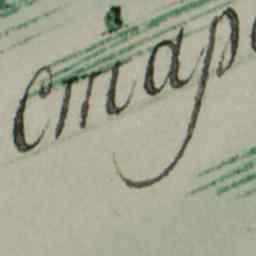 стар